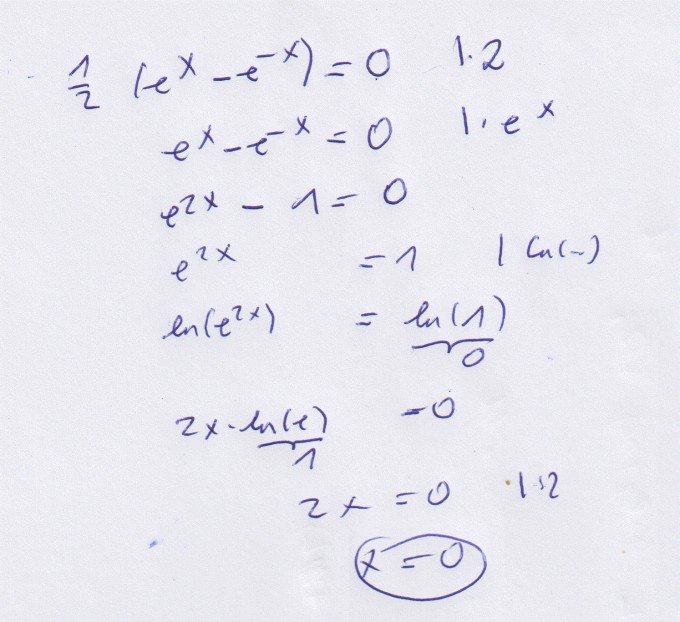 1/2 (e^x - e^-x) = 0 | · 2
e^x - e^-x = 0 | · e^x
e^2x - 1 = 0
e^2x = 1 | ln(~)
ln(e^2x) = ln(1)
0
2x · ln(e) = 0
1
2x = 0 | : 2
x = 0